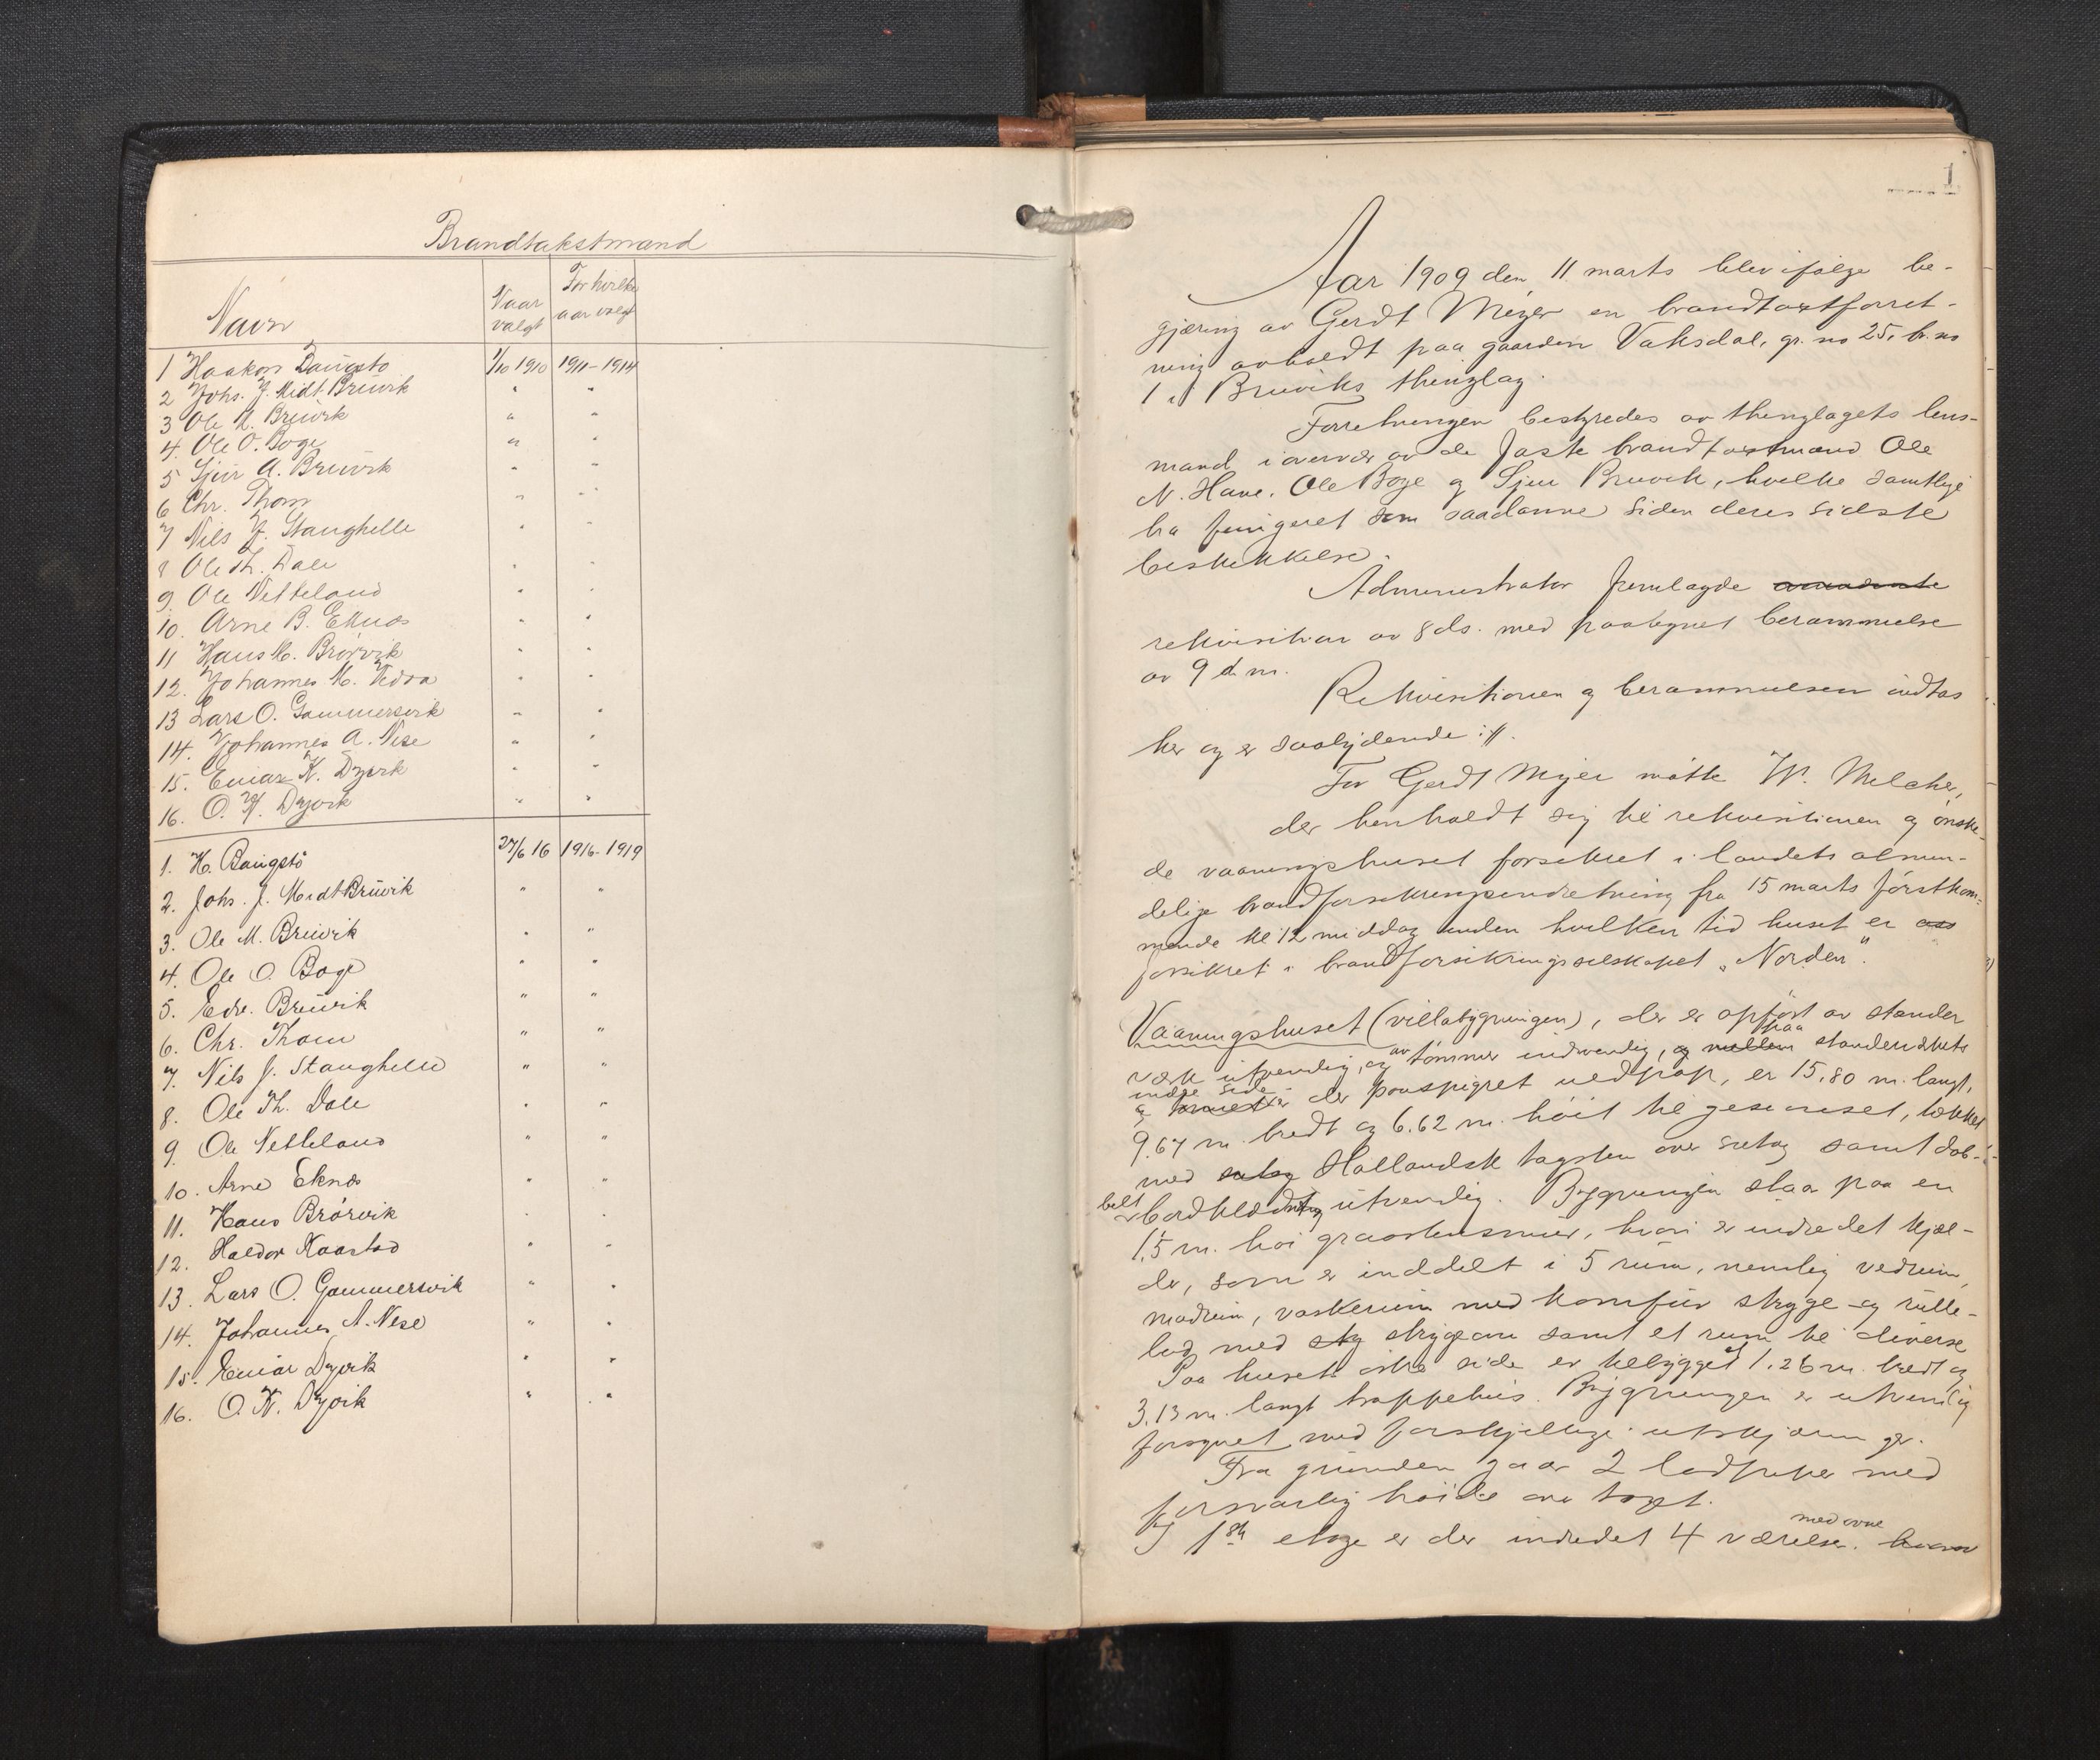 Brandtakstmænd
Navn
Naar valgt
For hvilke aar valgt
1 Haakon Daugstø 1/10 1910 1911-1914
2 Johs. J. Midt Bruvik " "
3 Ole M. Bruvik " "
4. Ole O. Boge " "
5 Sjur A. Bruvik " "
6 Chr. Thom " "
7 Nils J. Stanghelle " "
8 Ole Th. Dale " "
9. Ole Netteland " "
10. Arne B. Eknæs " "
11 Hans M. Brørvik " "
12. Johannes M. Vedvå " "
13 Lars O. Gammersvik " "
14. Johannes A. Nese " "
15. Einar K. Dyvik " "
16. O. K. Dyvik " "
1. H. Daugstø 27/6 16 1916-1919
2. Johs. J. Midt Bruvik " "
3. Ole M. Bruvik " "
4. Ole O. Boge " "
5. Edv. Bruvik " "
6. Chr. Thom " "
7. Nils J. Stanghelle " "
8. Ole Th. Dale " "
9. Ole Netteland " "
10. Arne Eknæs " "
11. Hans Brørvik " "
12. Haldor Kaarstad " "
13. Lars O. Gammersvik " "
14. Johannes A. Nese " "
15. Einar Dyvik " "
16. O. K. Dyvik " "
1
Aar 1909 den 11 marts blev ifølge be-
gjæring av Gerdt Meyer en brandtaxtforret-
ning avholdt paa gaarden Vaksdal, gr. no 25, br. no
1 i Bruviks thinglag.
Forretningen bestyredes av thinglagets lens-
mand i overvær av de faste brandtaxtmænd Ole
N. Hane, Ole Boge og Sjur Bruvik, hvilke samtlige
ha fungeret som saadanne siden deres sidste
beskikkelse.
Administrator fremlagde
rekvisition av 8 ds. med paategnet berammelse
av 9 d. m.
Rekvisitionen og berammelsen indtas
her og er saalydende:
For Gerdt Meyer møtte W. Melcher,
der henholdt sig til rekvisitionen og ønske-
de vaaningshuset forsikret i landets almin-
delige brandforsikringsindretning fra 15 marts førstkom-
mende kl 12 middag inden hvilken tid huset er
forsikret i brandforsikringsselskapet „Norden".
Vaaningshuset (villabygningen), der er opført av stander
verk utvendig, og av tømmer indvendig, og mellem paa standerverkets
indre side er der paaspigret uedpap, er 15,80 m. langt,
9.67 m. bredt og 6.62 m. høit til gesimset, tækket
med Hollandsk tagsten over sutag samt dob-
belt bordklædning utvendig. Bygningen staar paa en
1,5 m. høi graastensmur, hvori er indredet kjæl-
der, som er inddelt i 5 rum, nemlig vedrum,
matrum, vaskerum med komfur stryge- og rulle-
med strygeovn samt et rum til diverse
Paa husets østre side er tilbygget 1.26 m. bredt og
3.13 m. langt trappehus. Bygningen er utvendig
forsynet med forskjellige utskjæringer.
Fra grunden gaar 2 lodpiper med
forsvarlig høide over taget.
I 1ste etage er der indredet 4 værelser med ovne.